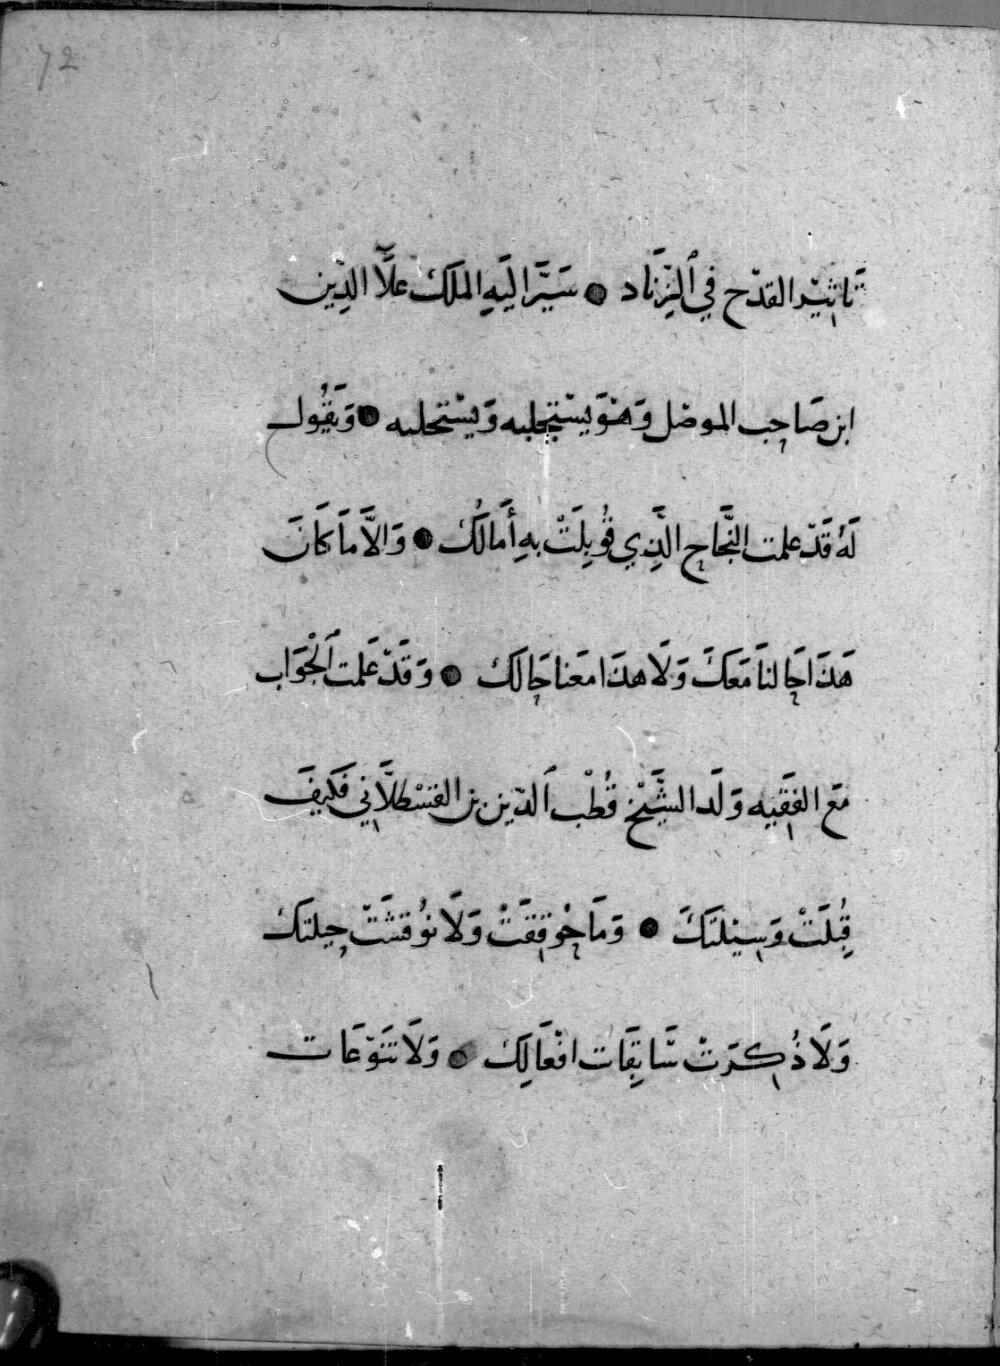 72
تَاثِيْر القدْح فِي ٱلزِّنَاد ● سَيَّرَ اليَهِ الملَكَ علآَّ الدِّين
ابن صَاحِب الموصْل وَهْوَ يسْتجلبه وَيسْتحلبه ● وَيَقُول
لَهُ قَدْ علمت النَّجَاح الَّذِي قُوبِلَتْ بِهِ أَمَالَكُ ● وَالاَّ مَا كَانَ
هَذَا حَالنَا مَعَكَ وَلَا هذَا معَنا حَالَكَ ● وَقَدْ عَلمت ٱلْجَوَاب
مَع الفَقِيه وَلَد الشَّيْخ قُطْب ٱلدّين بن القسْطلَّانِي فَكَيفَ
قُبِلَتْ وَسِيْلَتكَ ● وَمَا حُوقِقَتْ وَلَا نُوقشَتْ حِيلتكَ
وَلَا ذُكِرَتْ سَّابِقَات افْعَالِكَ ● وَلَا تَنَوّعَات